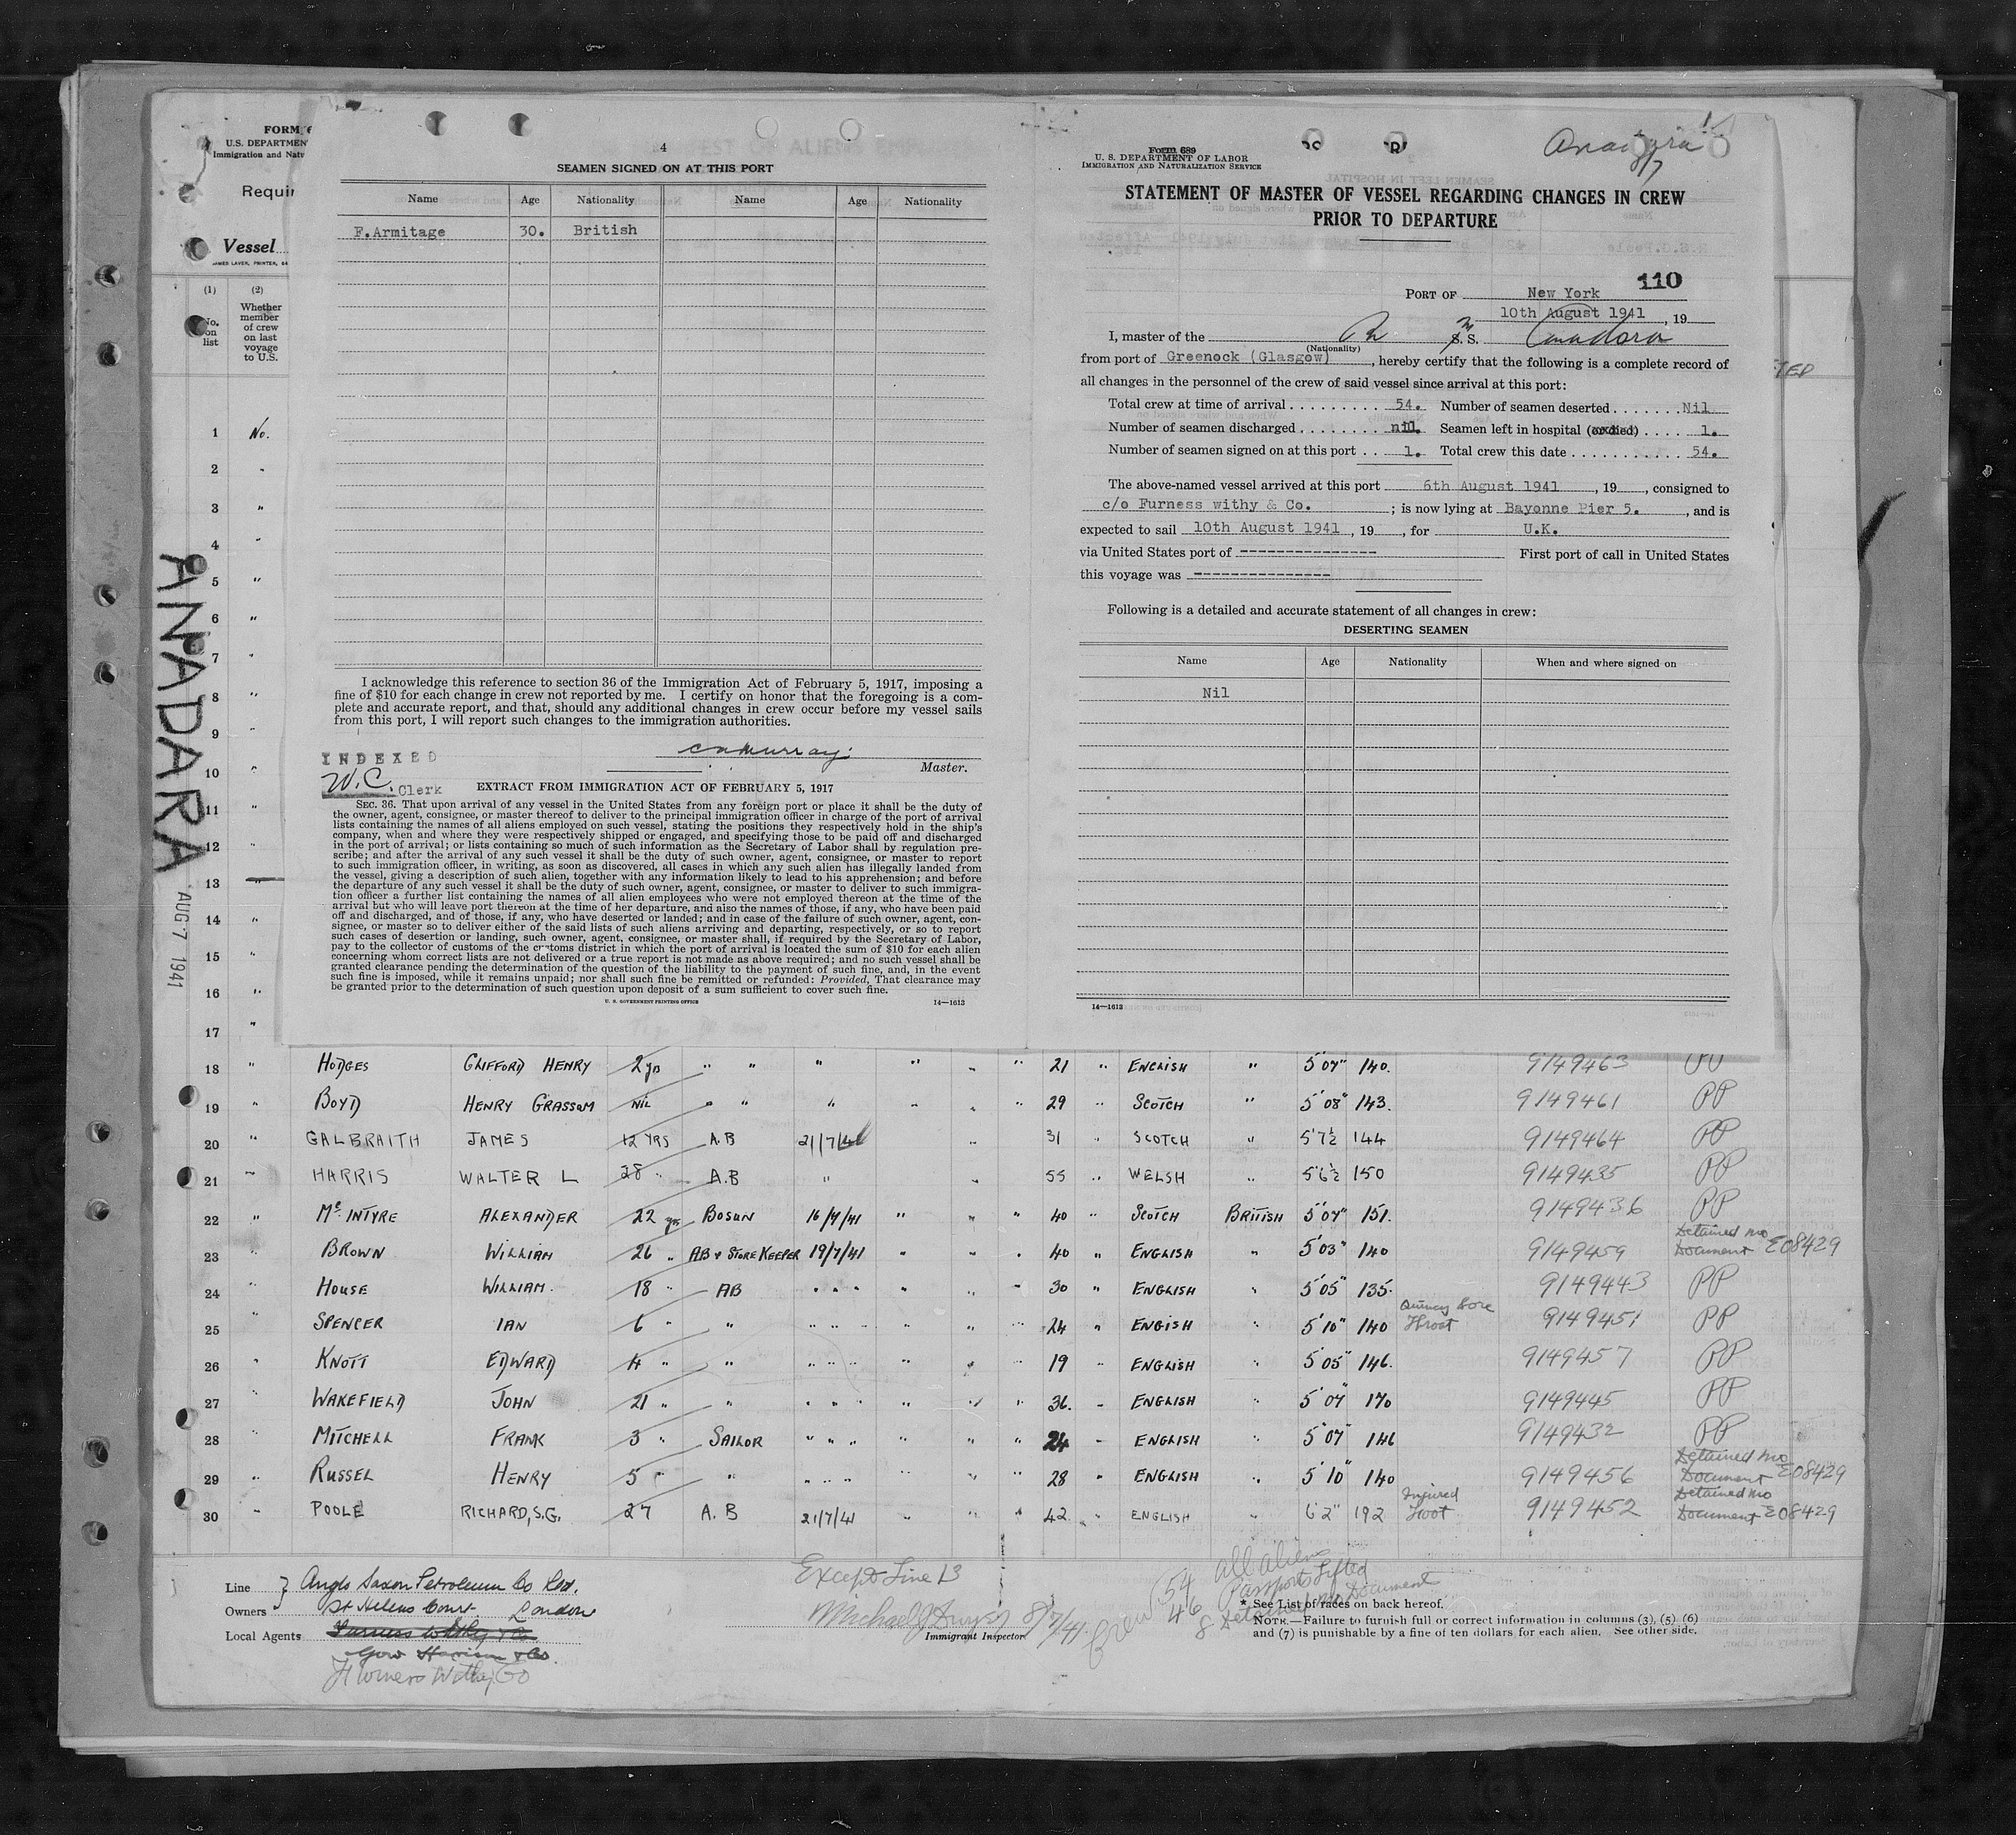 FORM
U.S. DEPARTMEN
Immigration and Natu
Requir
Vessel
JAMES LAVER, PRINTER,
(1) (2)
No. on list
Whether member of crew on last voyage to U.S.
1 No.
2 "
3 "
4 "
5 "
6 "
7 "
8 "
9 "
10 "
11 "
12 "
13 "
14 "
15 "
16 "
17 "
ANADARA
AUG 7 1941
4
SEAMEN SIGNED ON AT THIS PORT
Name Age Nationality Name Age Nationality
F.Armitage 30. British
I acknowledge this reference to section 36 of the Immigration Act of February 5, 1917, imposing a
fine of $10 for each change in crew not reported by me. I certify on honor that the foregoing is a com-
plete and accurate report, and that, should any additional changes in crew occur before my vessel sails
from this port, I will report such changes to the immigration authorities.
INDEXED
W.C. Clerk
Murray
Master.
EXTRACT FROM IMMIGRATION ACT OF FEBRUARY 5, 1917
SEC. 36. That upon arrival of any vessel in the United States from any foreign port or place it shall be the duty of
the owner, agent, consignee, or master thereof to deliver to the principal immigration officer in charge of the port of arrival
lists containing the names of all aliens employed on such vessel, stating the positions they respectively hold in the ship's
company, when and where they were respectively shipped or engaged, and specifying those to be paid off and discharged
in the port of arrival; or lists containing so much of such information as the Secretary of Labor shall by regulation pre-
scribe; and after the arrival of any such vessel it shall be the duty of such owner, agent, consignee, or master to report
to such immigration officer, in writing, as soon as discovered, all cases in which any such alien has illegally landed from
the vessel, giving a description of such alien, together with any information likely to lead to his apprehension; and before
the departure of any such vessel it shall be the duty of such owner, agent, consignee, or master to deliver to such immigra-
tion officer a further list containing the names of all alien employees who were not employed thereon at the time of the
arrival but who will leave port thereon at the time of her departure, and also the names of those, if any, who have been paid
off and discharged, and of those, if any, who have deserted or landed; and in case of the failure of such owner, agent, con-
signee, or master so to deliver either of the said lists of such aliens arriving and departing, respectively, or so to report
such cases of desertion or landing, such owner, agent, consignee, or master shall, if required by the Secretary of Labor,
pay to the collector of customs of the customs district in which the port of arrival is located the sum of $10 for each alien
concerning whom correct lists are not delivered or a true report is not made as above required; and no such vessel shall be
granted clearance pending the determination of the question of the liability to the payment of such fine, and, in the event
such fine is imposed, while it remains unpaid; nor shall such fine be remitted or refunded: Provided, That clearance may
be granted prior to the determination of such question upon deposit of a sum sufficient to cover such fine.
U. S. GOVERNMENT PRINTING OFFICE 14—1613
Form 689
U. S. DEPARTMENT OF LABOR
IMMIGRATION AND NATURALIZATION SERVICE
STATEMENT OF MASTER OF VESSEL REGARDING CHANGES IN CREW
PRIOR TO DEPARTURE
110
PORT OF New York
10th August 1941, 19
I, master of the Br S. S. Anadara
(Nationality)
from port of Greenock (Glasgow), hereby certify that the following is a complete record of
all changes in the personnel of the crew of said vessel since arrival at this port:
Total crew at time of arrival 54. Number of seamen deserted Nil
Number of seamen discharged nil. Seamen left in hospital (or died) 1.
Number of seamen signed on at this port 1. Total crew this date 54.
The above-named vessel arrived at this port 6th August 1941, 19, consigned to
c/o Furness withy & Co.; is now lying at Bayonne Pier 5., and is
expected to sail 10th August 1941, 19, for U.K.
via United States port of --------------- First port of call in United States
this voyage was ---------------
Following is a detailed and accurate statement of all changes in crew:
DESERTING SEAMEN
Name Age Nationality When and where signed on
Nil
14—1613
18 " HODGES CLIFFORD HENRY 2 yrs " " " " " " 21 " ENGLISH " 5'07" 140. 9149463 PP
19 " BOYD HENRY GRASSUM NIL " " " " " " 29 " SCOTCH " 5'08" 143. 9149461 PP
20 " GALBRAITH JAMES 12 YRS A.B 21/7/41 " 31 " SCOTCH " 5'7½ 144 9149464 PP
21 " HARRIS WALTER L 28 " A.B " " 55 " WELSH " 5'6½ 150 9149435 PP
22 " McINTYRE ALEXANDER 22 yrs BOSUN 16/7/41 " " " 40 " SCOTCH BRITISH 5'07" 151. 9149436 PP
23 " BROWN WILLIAM 26 " AB & STORE KEEPER 19/7/41 " " " 40 " ENGLISH " 5'03" 140 9149459 Detained no Document E08429
24 " HOUSE WILLIAM. 18 " AB " " " " " " 30 " ENGLISH " 5'05" 135. 9149443 PP
25 " SPENCER IAN 6 " " " " " " " " 24 " ENGISH " 5'10" 140 Quincy Sore Throat 9149451 PP
26 " KNOTT EDWARD 4 " " " " " " " " 19 " ENGLISH " 5'05" 146. 9149457 PP
27 " WAKEFIELD JOHN 21 " " " " " " " " 36. " ENGLISH " 5'07" 170 9149445 PP
28 " MITCHELL FRANK 3 " SAILOR " " " " " " 24 " ENGLISH " 5'07" 146 9149432 PP
29 " RUSSEL HENRY 5 " " " " " " " " 28 " ENGLISH " 5'10" 140 9149456 Detained no Document E08429
30 " POOLE RICHARD, S.G. 27 A.B 21/7/41 " " " 42 " ENGLISH " 6'2" 192 Injured Foot 9149452 Detained no Document E08429
Line } Anglo Saxon Petroleum Co Ltd.
Owners St Helens Court London
Local Agents Furness Withy & Co
Gow Harrison & Co.
Furness Withy Co
Except Line 13
Michael J Dwyer 8/7/41.
Immigrant Inspector
Crew 54 all alien
46 Passports Lifted
8 Detained no Document
* See List of races on back hereof.
NOTE.—Failure to furnish full or correct information in columns (3), (5), (6)
and (7) is punishable by a fine of ten dollars for each alien. See other side.